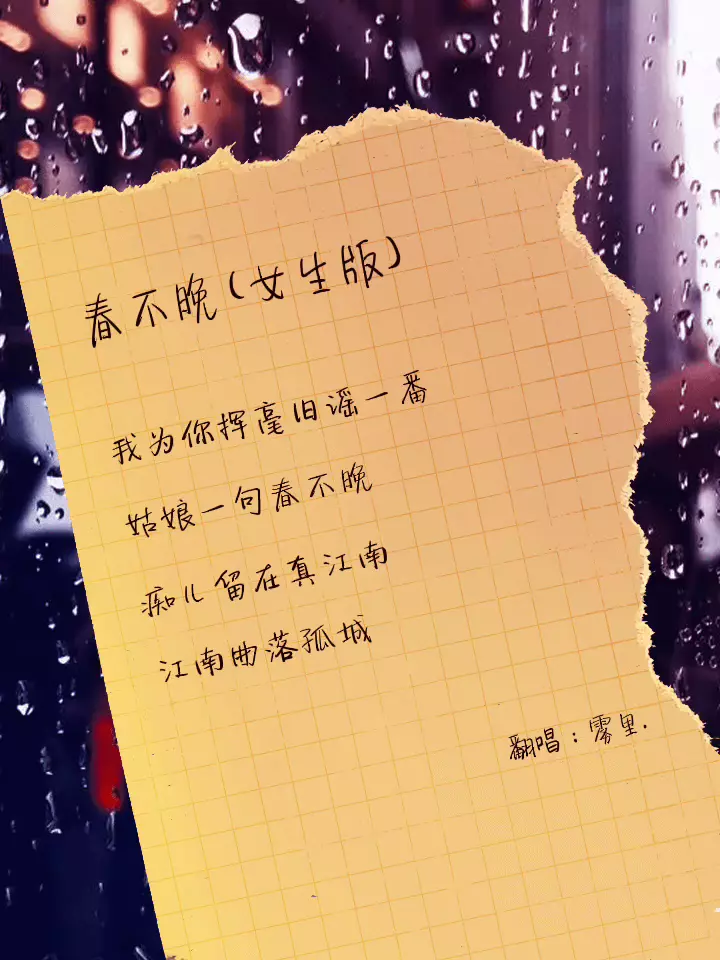 春不晚(女生版)
我为你挥毫旧谣一番
姑娘一句春不晚
痴儿留在真江南
江南曲落孤城
翻唱:雾里.